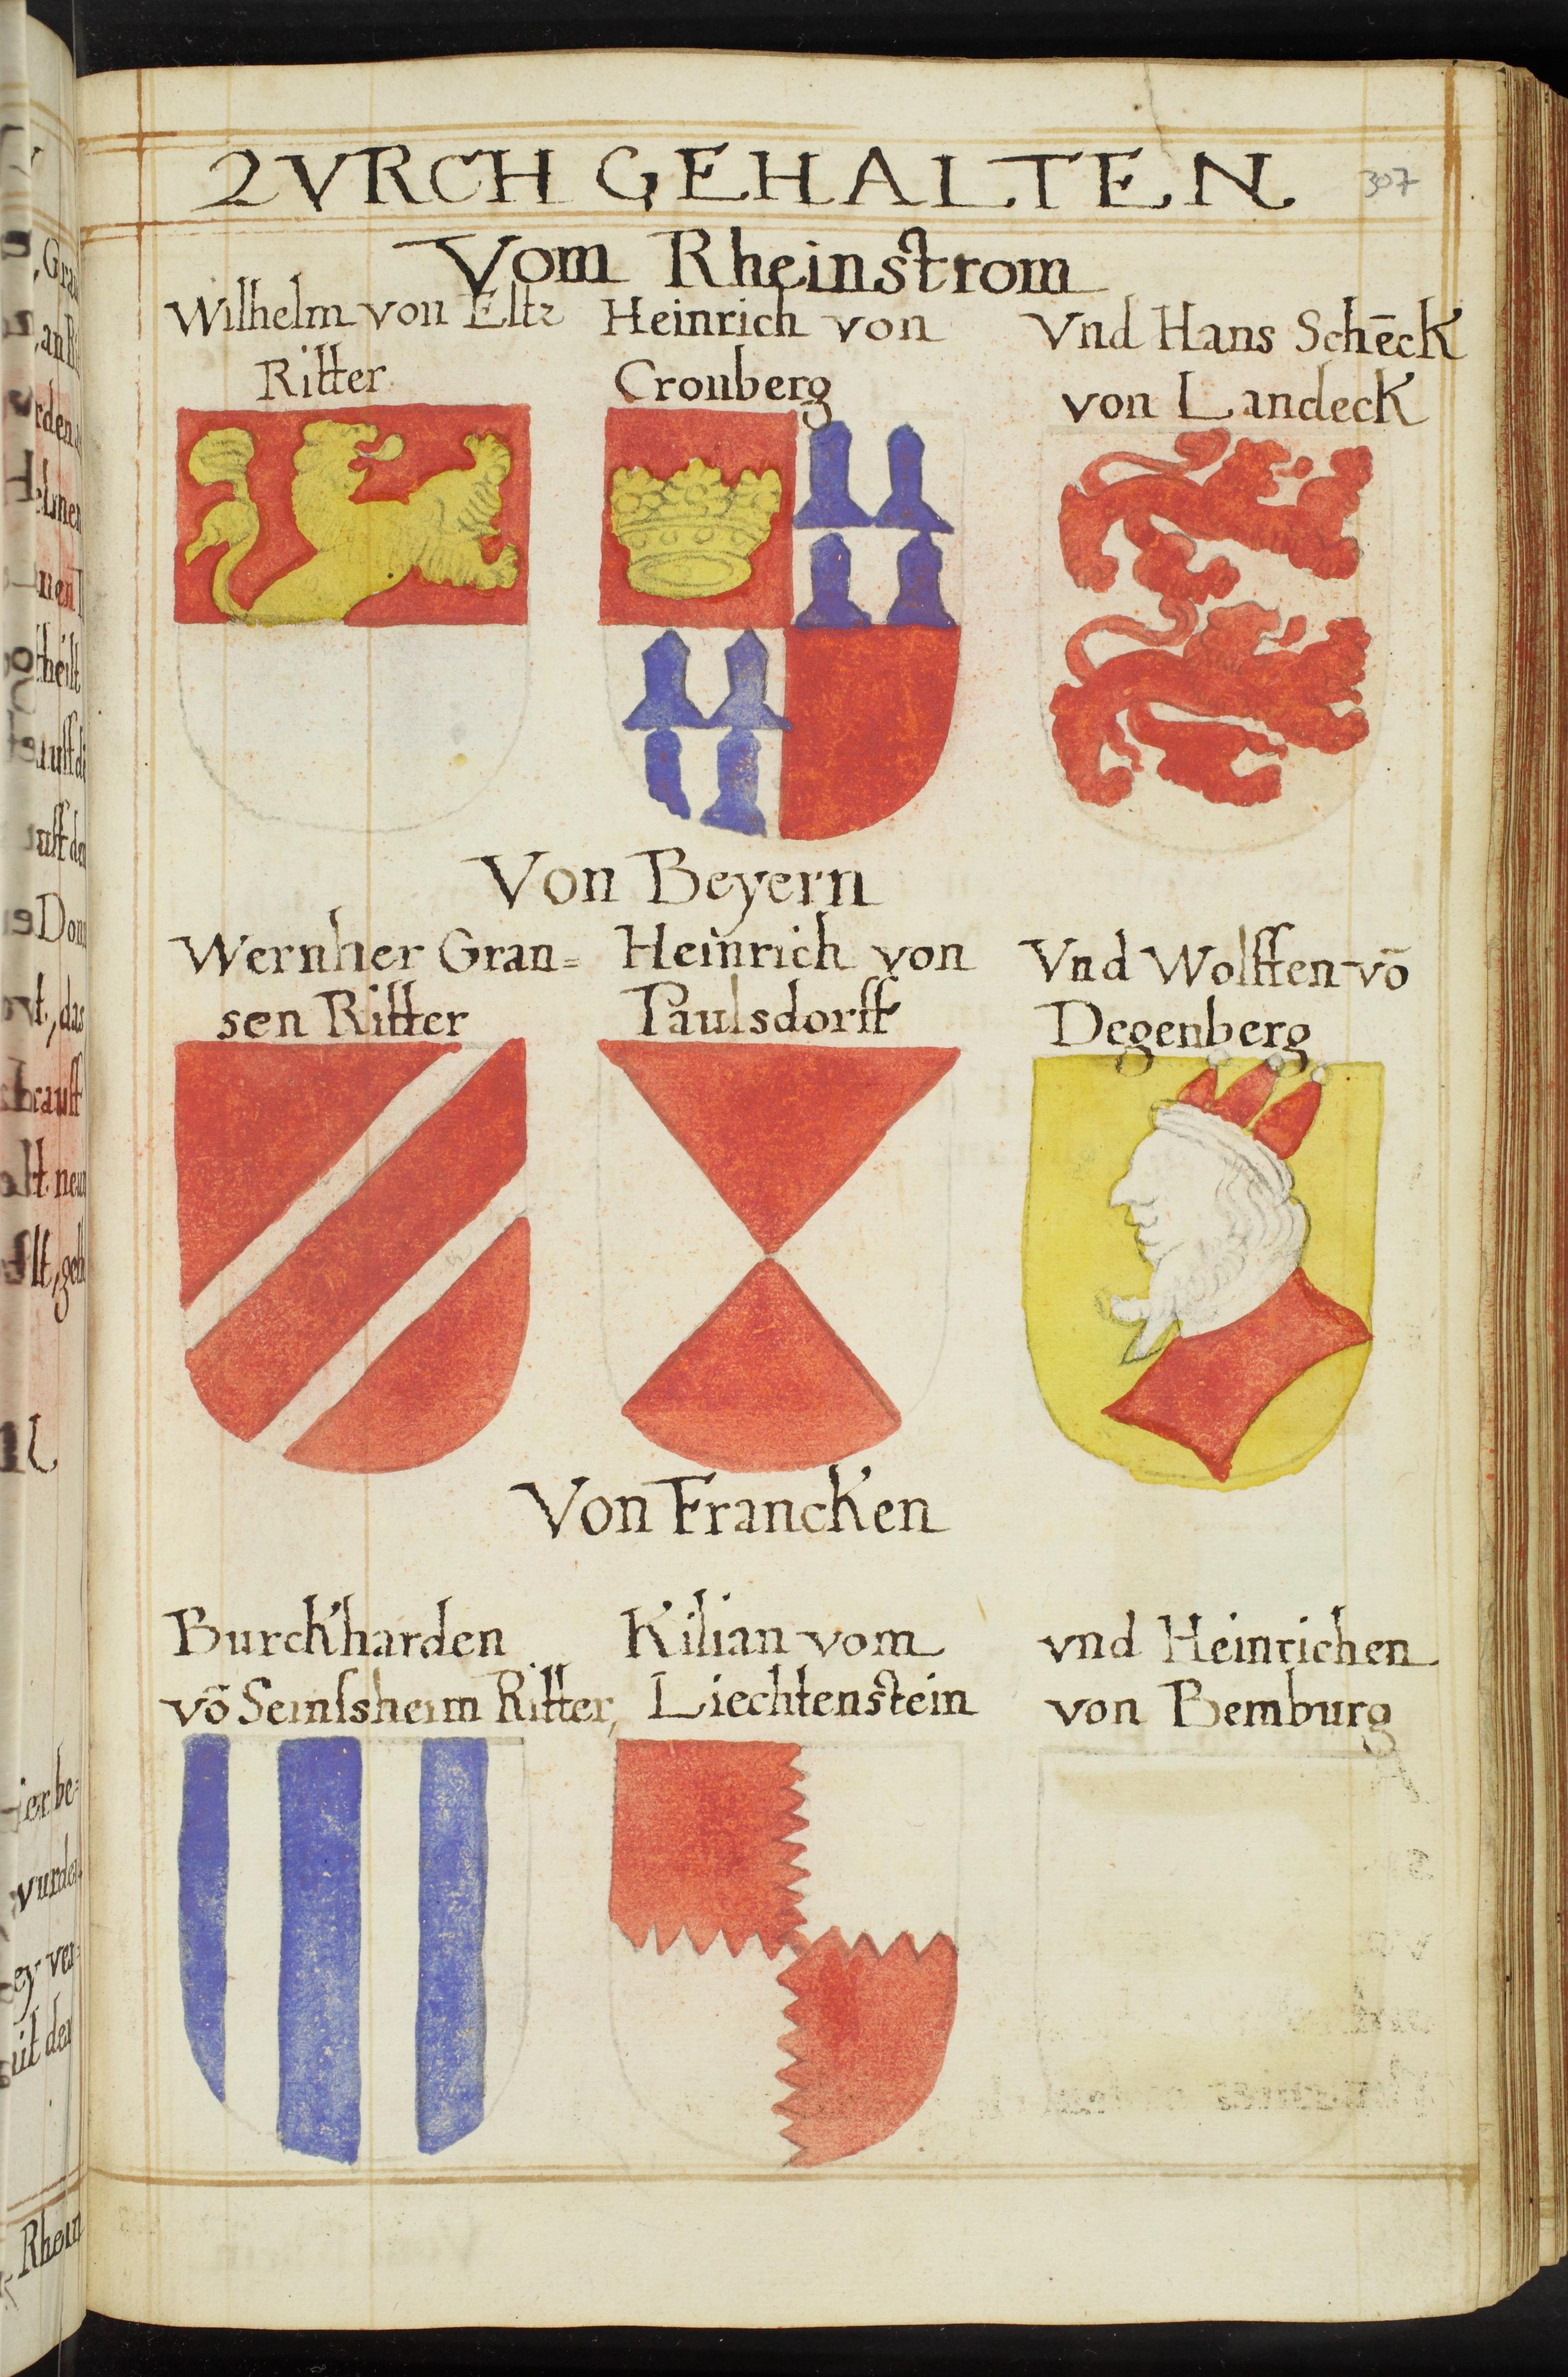 ZVRCH GEHALTEN
307
Vom Rheinstrom
Wilhelm von Eltz
Ritter
Heinrich von
Cronberg
Vnd Hans Schēck
von Landeck
Von Beyern
Wernher Gran=
sen Ritter
Heinrich von
Paulsdorff
Vnd Wolffen võ
Degenberg
Von Francken
Burckharden
võ Seinssheim Ritter,
Kilian vom
Liechtenstein
vnd Heinrichen
von Bemburg